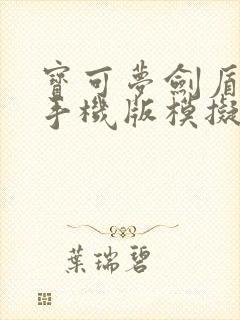 寶可夢劍盾
手機版模擬
葉瑞碧